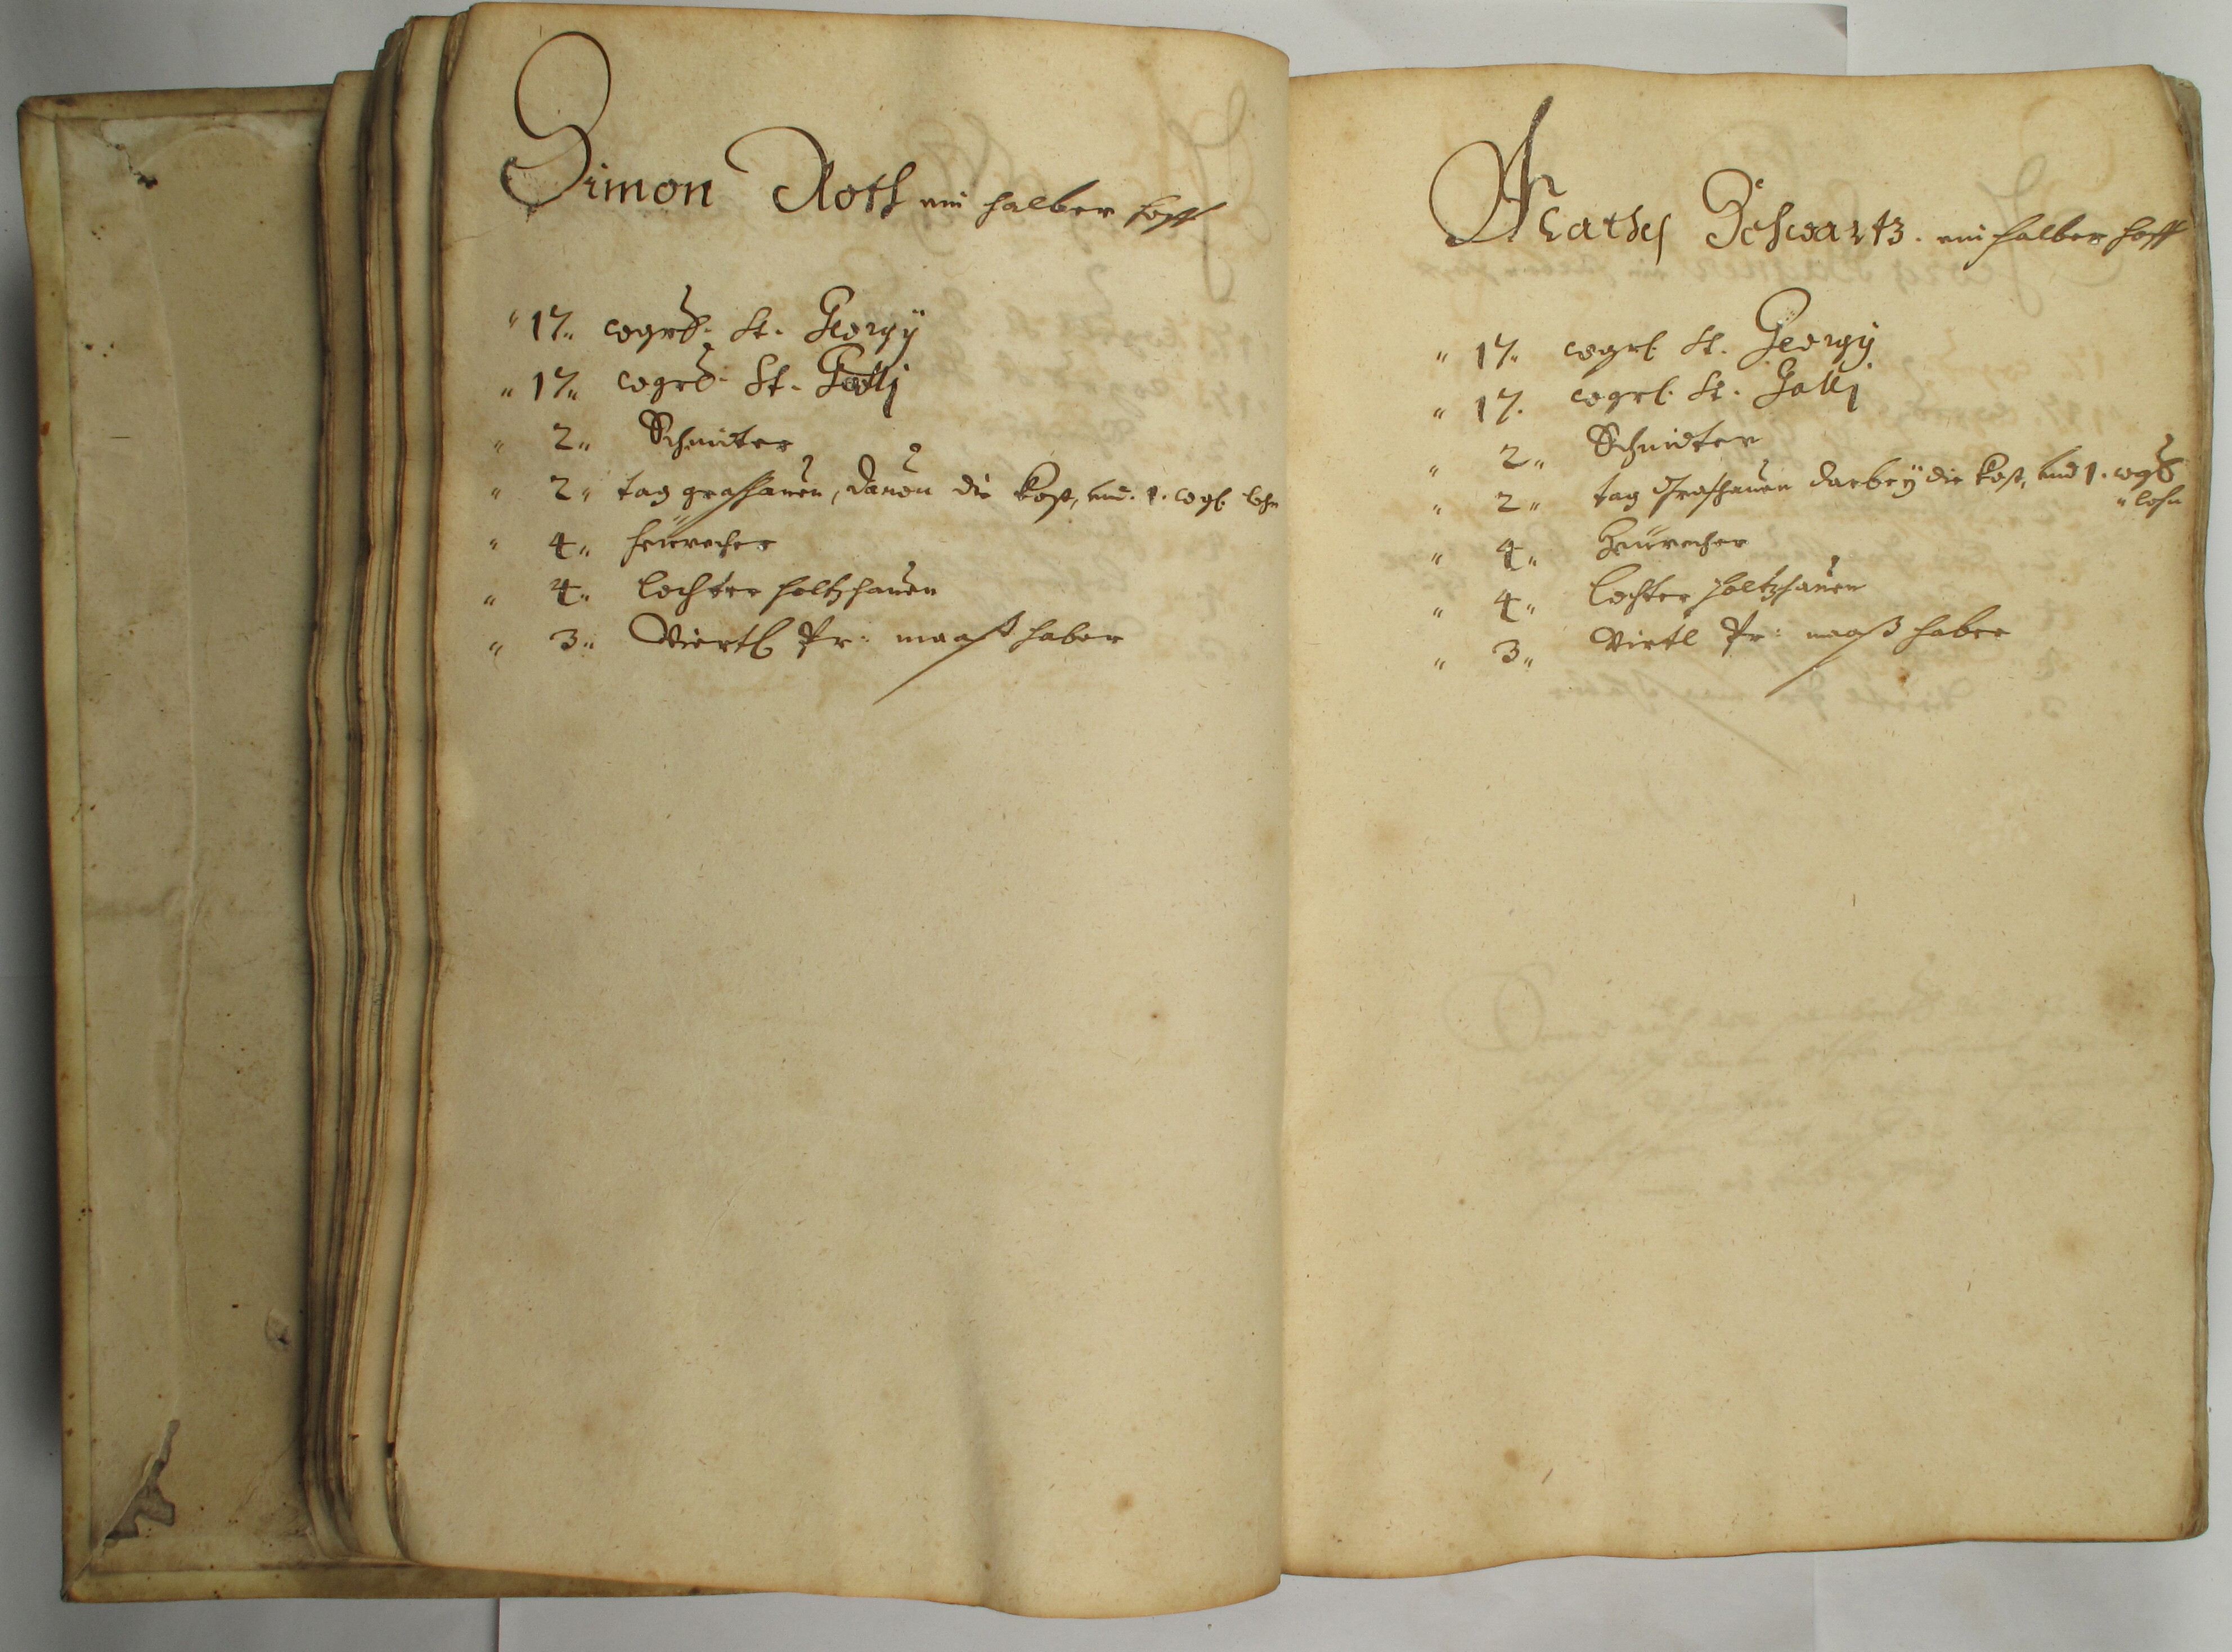 Simon Roth ein halber hoff
" 17 " wgrß. St. Georgÿ
" 17 " wgrß. St. Galli
" 2 " Schnidter
" 2 " tag graßhauen, dauon die kost, vnd. 1. wgl. lohn
" 4 " heürecher
" 4 " lachter holtzhauen
" 3 " Viertl Pr: maaß haber
Mathes Schwartz. ein halber hoff
" 17 " wgrl. St. Georgÿ
" 17. wgrl. St. Galli
" 2 " Schnidter
" 2 " tag Graßhauen darbeÿ die kost, vnd 1. wgß
" lohn
" 4 " Heürecher
" 4 " lachter holtzhauen
" 3 " Virtl Pr: maaß haber